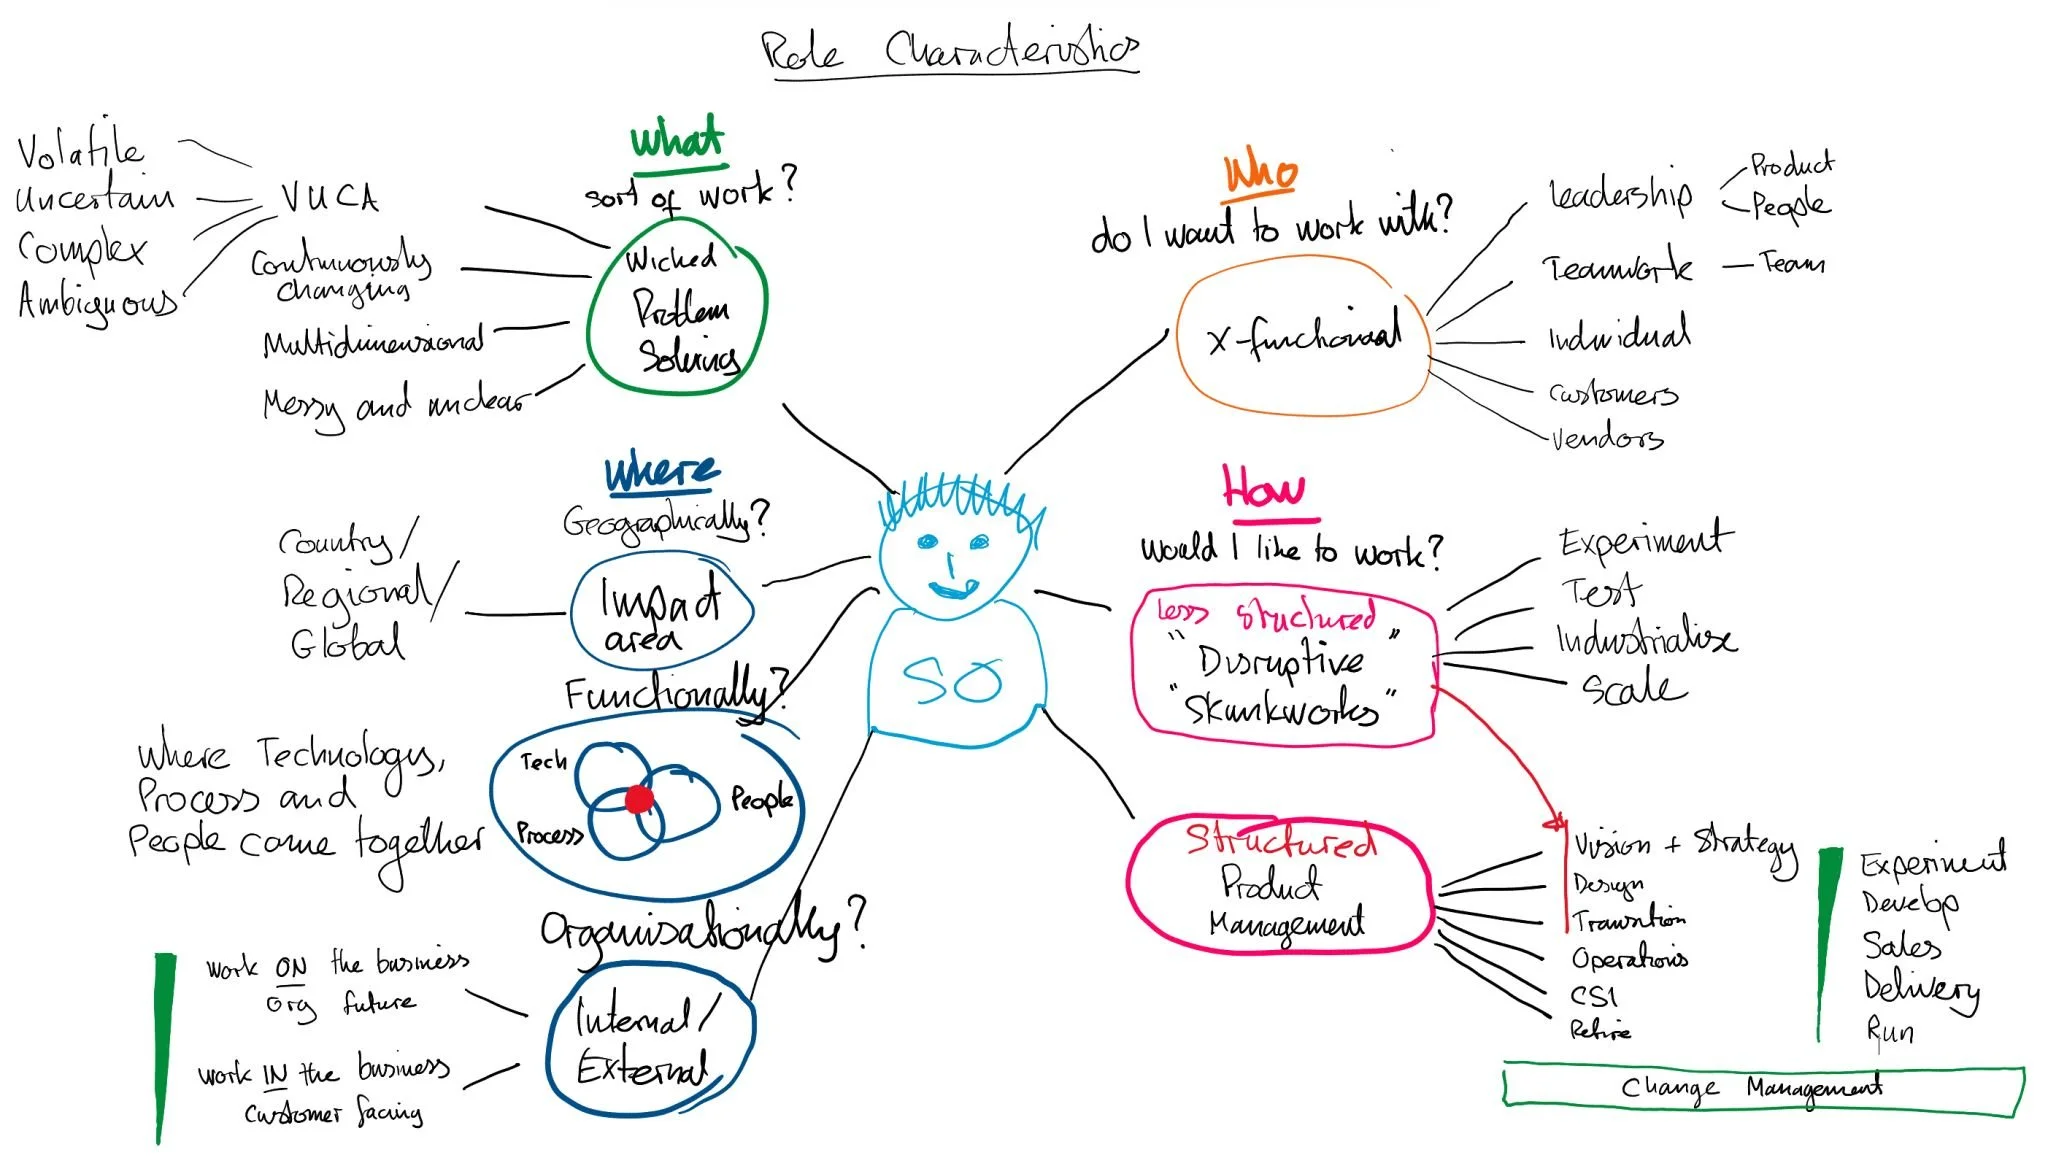 Role Characteristics
What
sort of work?
Wicked
Problem
Solving
VUCA
Volatile
Uncertain
Complex
Ambiguous
Continuously
changing
Multidimensional
Messy and unclear
Who
do I want to work with?
X-functional
Leadership
Product
People
Teamwork
Team
Individual
Customers
Vendors
Where
Geographically?
Impact
area
Country/
Regional/
Global
Functionally?
Tech
People
Process
Where Technology,
Process and
People come together
Organisationally?
Internal/
External
work ON the business
org future
work IN the business
customer facing
How
would I like to work?
Less structured
"Disruptive"
"Skunkworks"
Experiment
Test
Industrialise
Scale
Structured
Product
Management
Vision + Strategy
Design
Transition
Operations
CSI
Retire
Experiment
Develop
Sales
Delivery
Run
Change Management
SO